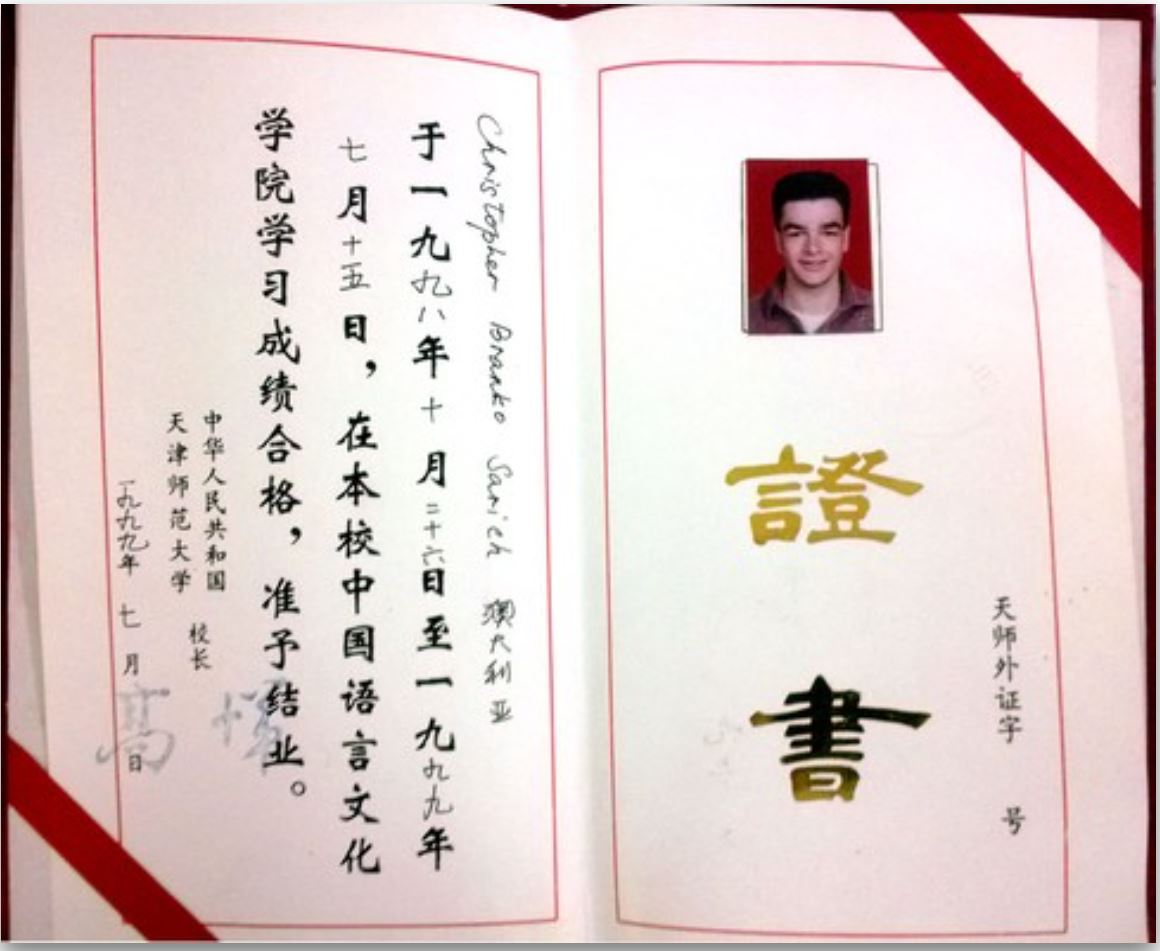 證書
天师外证字 号
Christopher Branko Sarich 澳大利亚
于一九九八年十月二十六日至一九九九年
七月十五日，在本校中国语言文化
学院学习成绩合格，准予结业。
中华人民共和国
天津师范大学
校长
一九九九年七月 日